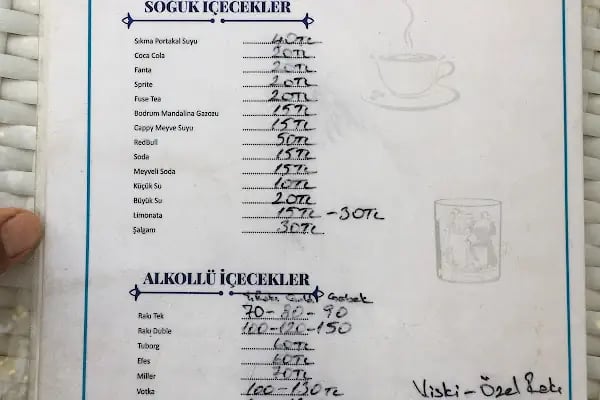 SOĞUK İÇECEKLER
Sıkma Portakal Suyu 40TL
Coca Cola 20TL
Fanta 20TL
Sprite 20TL
Fuse Tea 20TL
Bodrum Mandalina Gazozu 15TL
Cappy Meyve Suyu 15TL
RedBull 50TL
Soda 15TL
Meyveli Soda 15TL
Küçük Su 10TL
Büyük Su 20TL
Limonata 15TL - 30TL
Şalgam 30TL
ALKOLLÜ İÇECEKLER
Rakı Tek 70-80-90
Rakı Duble 100-120-150
Tuborg 60TL
Efes 60TL
Miller 70TL
Votka 100-130TL
Viski - Özel Rakı